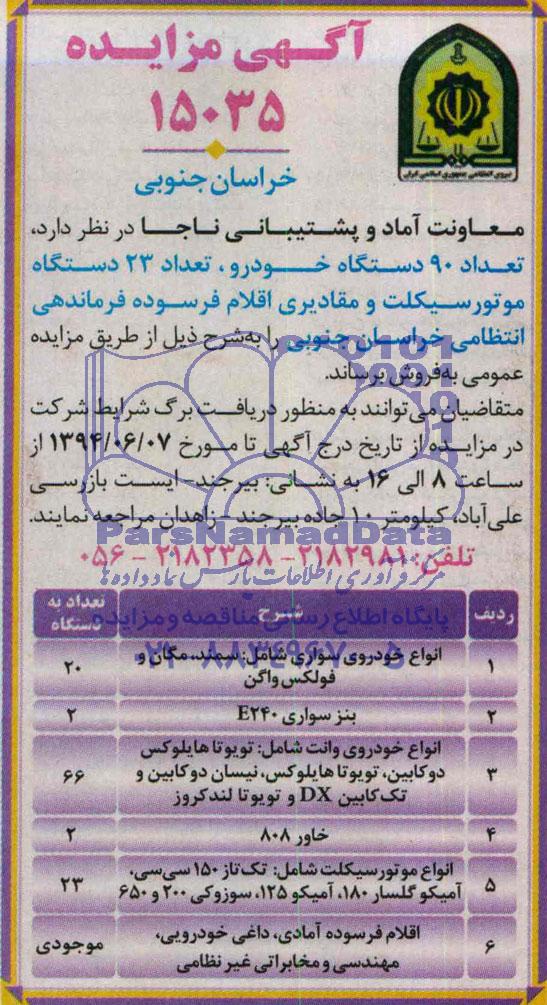 آگهی مزایده
۱۵۰۳۵
خراسان جنوبی
نیروی انتظامی جمهوری اسلامی ایران
معاونت آماد و پشتیبانی ناجا در نظر دارد،
تعداد ۹۰ دستگاه خودرو، تعداد ۲۳ دستگاه
موتورسیکلت و مقادیری اقلام فرسوده فرماندهی
انتظامی خراسان جنوبی را به‌شرح ذیل از طریق مزایده
عمومی به‌فروش برساند.
متقاضیان می‌توانند به منظور دریافت برگ شرایط شرکت
در مزایده از تاریخ درج آگهی تا مورخ ۱۳۹۴/۰۶/۰۷ از
ساعت ۸ الی ۱۶ به نشانی: بیرجند- ایست بازرسی
علی‌آباد، کیلومتر ۱۰ جاده بیرجند - زاهدان مراجعه نمایند.
ParsNamadData
تلفن: ۲۱۸۲۹۸۱- ۲۱۸۲۳۵۸ - ۰۵۶
مرکز فرآوری اطلاعات پارس نماد داده ها
پایگاه اطلاع رسانی مناقصه و مزایده
ردیف شرح تعداد به دستگاه
۱ انواع خودروی سواری شامل: سمند، مگان و ۲۰
فولکس واگن
۲ بنز سواری E۲۴۰ ۲
انواع خودروی وانت شامل: تویوتا هایلوکس
۳ دوکابین، تویوتا هایلوکس، نیسان دوکابین و ۶۶
تک‌کابین DX و تویوتا لندکروز
۴ خاور ۸۰۸ ۲
۵ انواع موتورسیکلت شامل: تک‌تاز ۱۵۰ سی‌سی، ۲۳
آمیکو گلسار ۱۸۰، آمیکو ۱۲۵، سوزوکی ۲۰۰ و ۶۵۰
۶ اقلام فرسوده آمادی، داغی خودرویی، موجودی
مهندسی و مخابراتی غیر نظامی